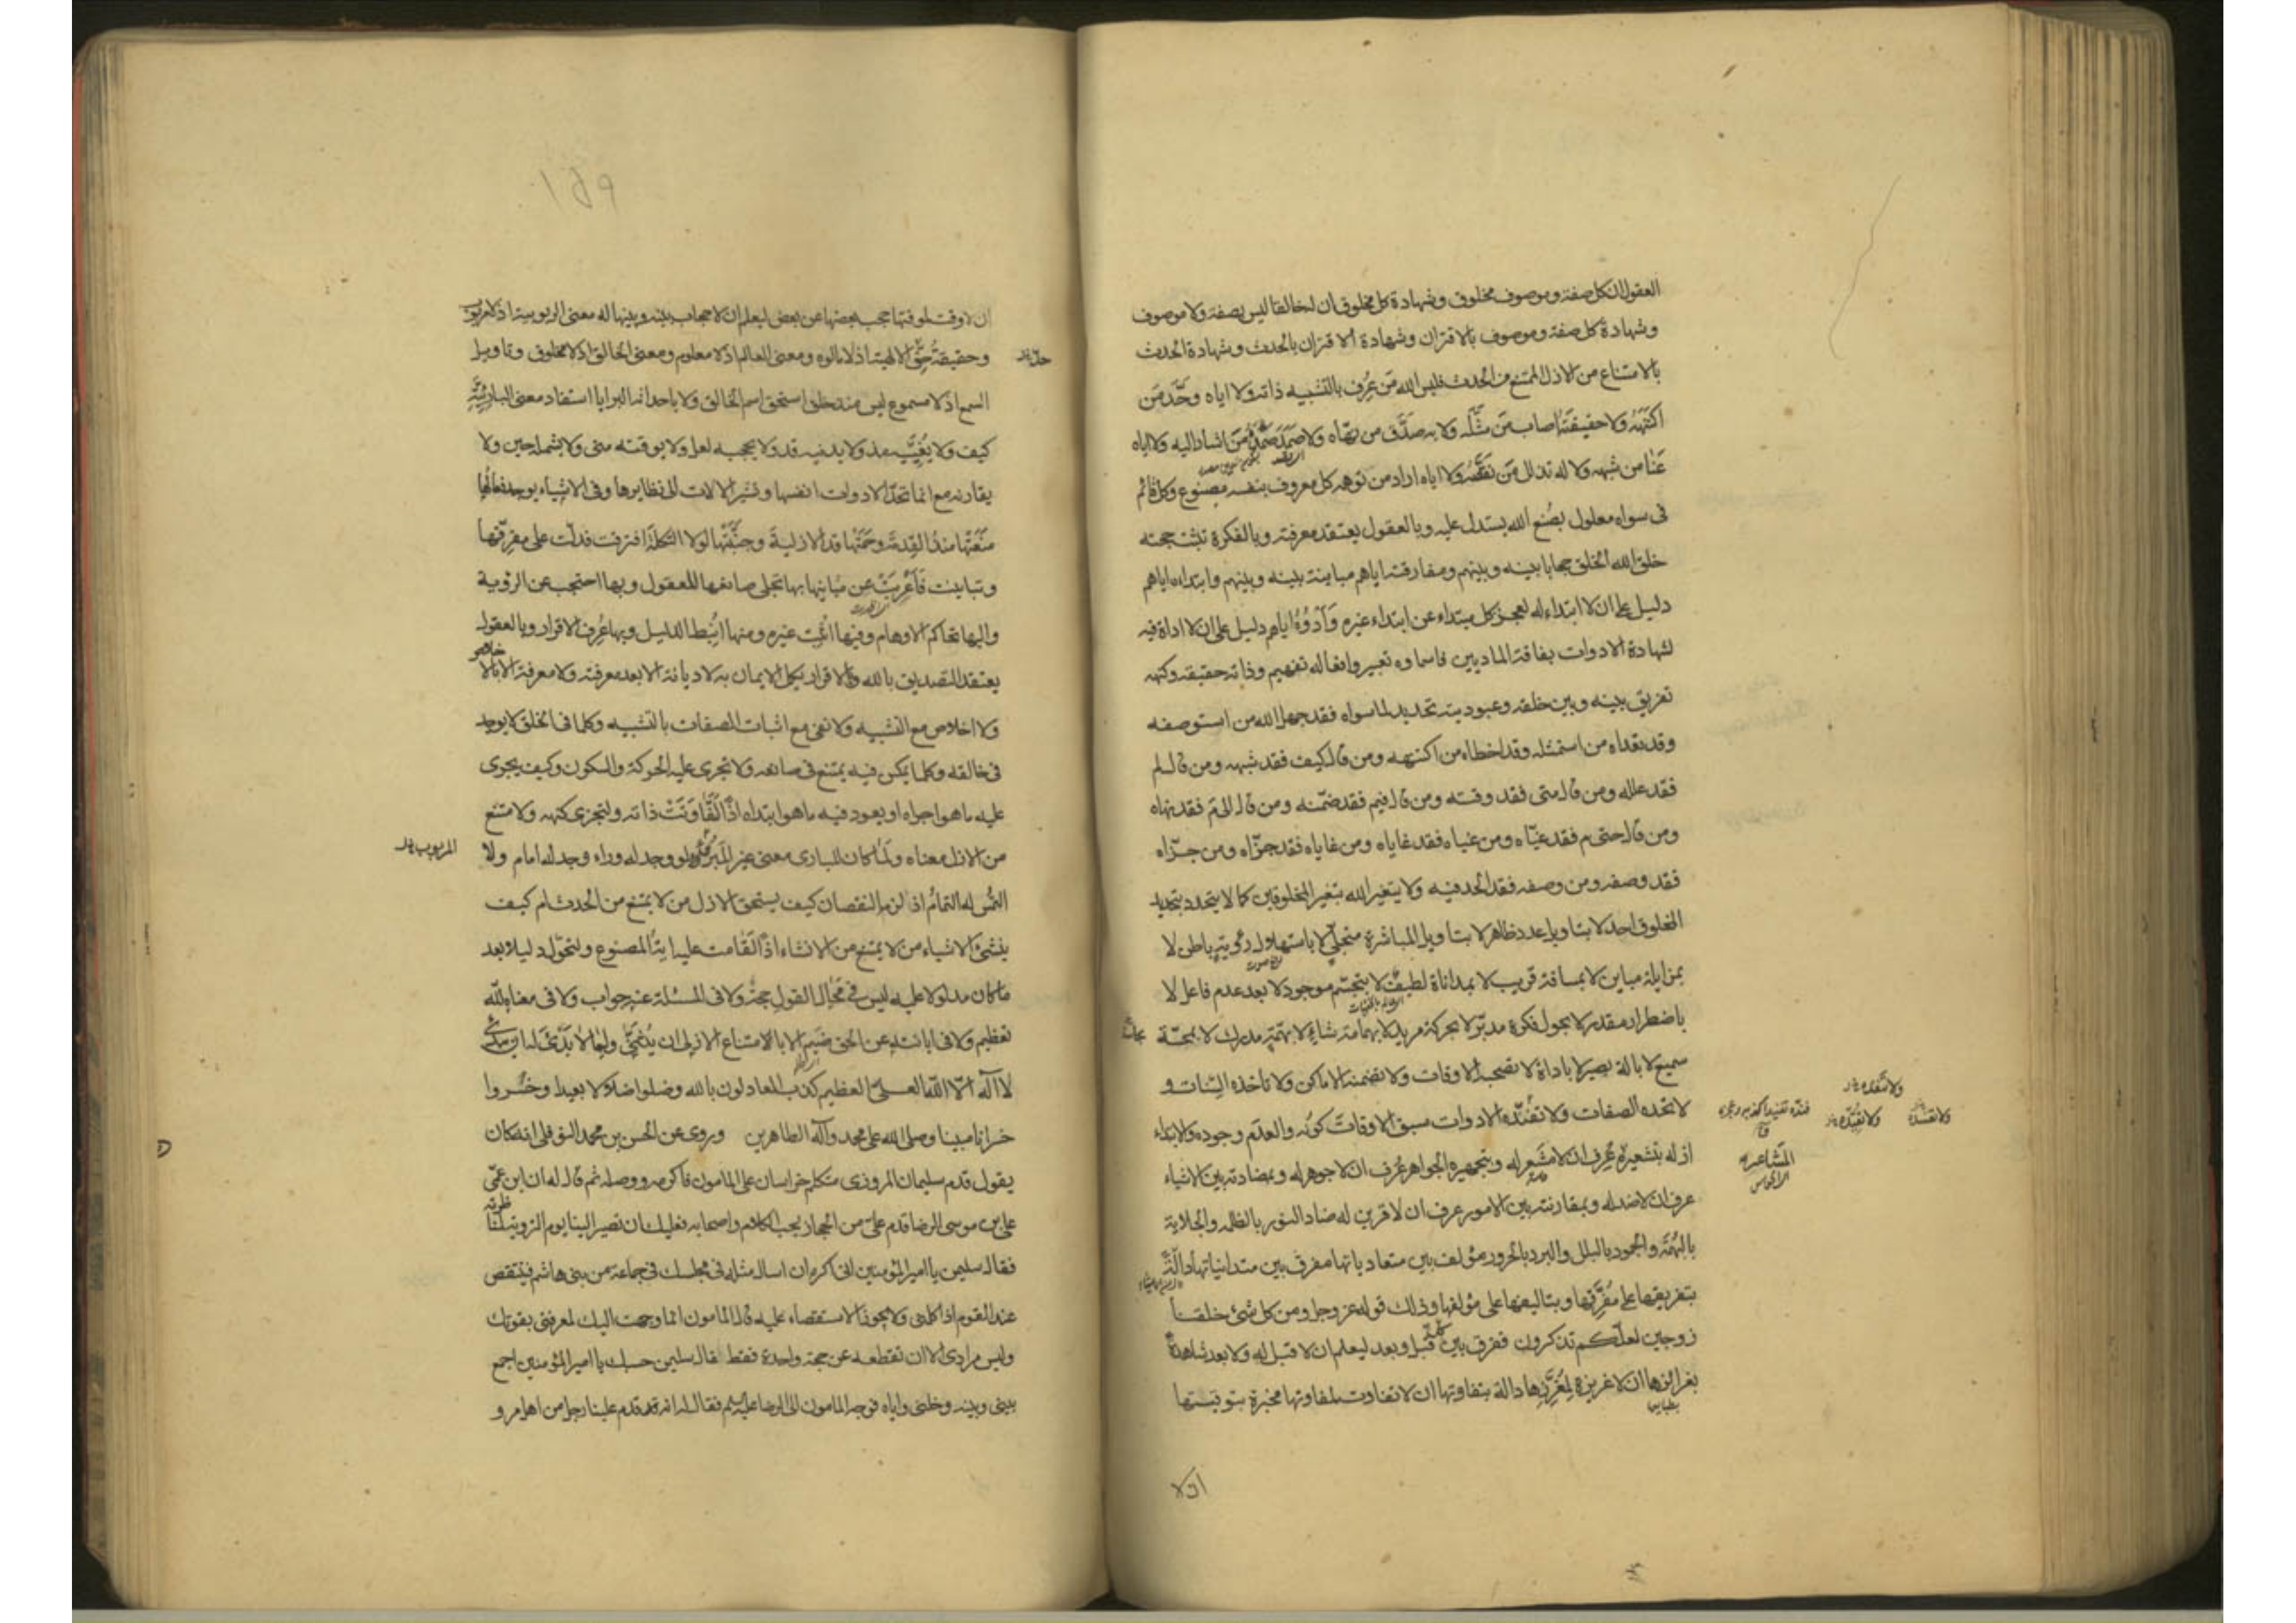 العقول ان كل صفة وموصوف مخلوق وشهادة كل مخلوق ان له خالقا ليس بصفة ولا موصوف
وشهادة كل صفة وموصوف بالاقتران وشهادة الاقتران بالحدث وشهادة الحدث
بالامتناع من الازل الممتنع من الحدث فليس الله من عرف بالتشبيه ذاته ولا اياه وحّد من
اكتنهه ولا حقيقته اصاب من مثّله ولا به صدّق من نهّاه ولا صمد صمده من اشار اليه ولا اياه
عنا من شبهه ولا له تذلل من بعّضه ولا اياه اراد من توهمه كل معروف بنفسه مصنوع وكل قائم
فى سواه معلول بصُنع الله يستدل عليه وبالعقول يعتقد معرفته وبالفكرة تثبت حجته
خلق الله الخلق حجابا بينه وبينهم ومفارقته اياهم مباينة بينه وبينهم وابتداءه اياهم
دليل على ان لا ابتداء له لعجز كل مبتداء عن ابتداء غيره وَأَدْوُهُ اياهم دليل على ان لا اداة فيه
لشهادة الادوات بفاقة الماديين فاسماؤه تعبير وافعاله تفهيم وذاته حقيقة وكنهه
تفريق بينه وبين خلقه وعبوديته تحديد لما سواه فقد جهل الله من استوصفه
وقد تعداه من استمثله وقد اخطاه من اكتنهه ومن قال كيف فقد شبهه ومن قال لم
فقد علله ومن قال متى فقد وقته ومن قال فيم فقد ضمّنه ومن قال الى م فقد نهاه
ومن قال حتى م فقد غيّاه ومن غياه فقد غاياه ومن غاياه فقد جزّاه ومن جزّاه
فقد وصفه ومن وصفه فقد الحد فيه ولا يتغير الله بتغير المخلوقين كما لا يتحدد بتحديد
المخلوق احد لا بتاويل عدد ظاهر لا بتاويل المباشرة متجلّي لا باستهلال رؤية باطن لا
بمزايلة مباين لا بمسافة قريب لا بمداناة لطيف لا بتجسّم موجود لا بعد عدم فاعل لا
باضطرار مقدر لا بجول فكرة مدبّر لا بحركة مريد لا بهمامة شاء لا بهمّة مدرك لا بمجسّة
سميع لا بالة بصير لا باداة لا تصحبه الاوقات ولا تضمنه الاماكن ولا تاخذه السّنات و
لا تحده الصفات ولا تفنّده الادوات سبق الاوقات كونُه والعدم وجوده والابتداء
ولا تنقده
ولا تقيّده
المشاعر
الحواس
ازله بتشعيره عُرف ان لا مشعر له وبتجهيره الجواهر عُرف ان لا جوهر له وبمضادته بين الاشياء
عرف ان لا ضد له وبمقارنته بين الامور عرف ان لا قرين له ضاد النور بالظلم والجلاية
بالبُهمة والجمود بالبلل والبرد بالحرور مؤلف بين متعادياتها مفرق بين متدانياتها دالّة
بتفريقها على مُفرّقها وبتاليفها على مؤلفها وذلك قوله عز وجل ومن كل شئ خلقنا
زوجين لعلّكم تذكرون ففرق بين قبل وبعد ليعلم ان لا قبل له ولا بعد شاهدة
بغرائزها ان لا غريزة لمُغرّزها دالة بتفاوتها ان لا تفاوت لمفاوتها مخبرة بتوقيتها
١٥٩
ان لا وقت لموقتها حجب بعضها عن بعض ليعلم ان لا حجاب بينه وبينها له معنى الربوبية اذ لا مربوب
وحقيقة الالهية اذ لا مالوه ومعنى العالم اذ لا معلوم ومعنى الخالق اذ لا مخلوق وتاويل
السمع اذ لا مسموع ليس منذ خلق استحق اسم الخالق ولا باحداثه البرايا استفاد معنى البارئيّة
كيف ولا يُغيّبه مذ ولا يدنيه قد ولا يحجبه لعل ولا يوقته متى ولا يشمله حين ولا
يقارنه مع انما تحدّ الادوات انفسها وتشير الالات الى نظايرها وفى الاشياء يوجد فعالُها
منعتها منذُ القِدمة وحمتها قد الازلية وجنّبتها لولا التكملة افترقت فدلّت على مفرّقها
وتباينت فَأَعْرَبَتْ عن مباينها بها تجلى صانعها للعقول وبها احتجب عن الرؤية
واليها تحاكم الاوهام وفيها اثبت غيره ومنها انبُط الدليل وبها عُرف الاقرار وبالعقول
يعتقد التصديق بالله وبالاقرار يكمل الايمان به لا ديانة الا بعد معرفة ولا معرفة الا بالاخلاص
ولا اخلاص مع التشبيه ولا نفى مع اثبات الصفات بالتشبيه وكلما فى الخلق لا يوجد
فى خالقه وكلما يمكن فيه يمتنع فى صانعه ولا تجرى عليه الحركة والسكون وكيف يجرى
عليه ما هو اجراه او يعود فيه ما هو ابتداه اذًا لتفاوتت ذاته ولتجزى كنهه ولامتنع
من الازل معناه ولما كان للبارى معنى غير المبروء ولو وجد له وراء وجد له امام ولا
التمس له التمام اذ لزمه النقصان كيف يستحق الازل من لا يمتنع من الحدث ام كيف
ينشئ الاشياء من لا يمتنع من الانشاء اذًا لقامت عليه ايةُ المصنوع ولتحوّل دليلا بعد
ما كان مدلولا عليه ليس فى محال القول حجة ولا فى المسئلة عنه جواب ولا فى معناه لله
تعظيم ولا فى ابانته عن الحق ضيم الا بالامتناع الازلى ان يُثنّى ولما لا بدئ له ان يبدى
لا اله الّا الله العلىّ العظيم كذب العادلون بالله وضلوا ضلالا بعيدا وخسروا
خسرانا مبينا وصلى الله على محمد وآله الطاهرين وروى عن الحسن بن محمد النوفلى انه كان
يقول قدم سليمان المروزى متكلم خراسان على المامون فاكرمه ووصله ثم قال له ان ابن عمّى
على بن موسى الرضا قدم علىّ من الحجاز يحب الكلام واصحابه فعليك ان تصير الينا يوم التروية لمناظرته
فقال سليمن يا امير المؤمنين انى اكره ان اسال مثله فى مجلسك فى جماعة من بنى هاشم فينتقص
عند القوم اذا كلمنى ولا يجوز الاستقصاء عليه قال المامون انما وجهت اليك لمعرفتى بقوتك
وليس مرادى الا ان تقطعه عن حجة واحدة فقط فقال سليمن حسبك يا امير المؤمنين اجمع
بينى وبينه وخلنى واياه فوجه المامون الى الرضا عليه السلم فقال له انه قد قدم علينا رجل من اهل مرو